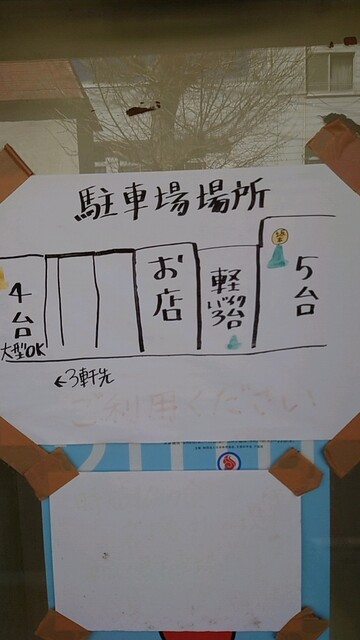 駐車場場所
4台
大型OK
お店
軽
バイク
3台
5台
←3軒先
ご利用ください